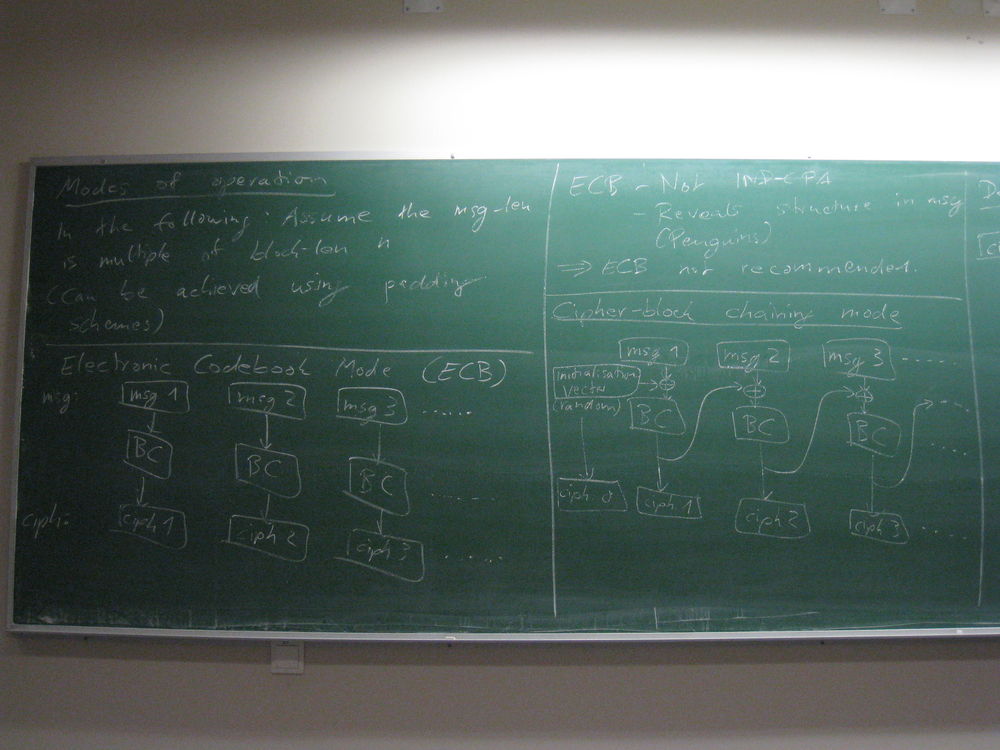 Modes of operation
In the following: Assume the msg-len
is multiple of block-len n
(Can be achieved using padding
schemes)
Electronic Codebook Mode (ECB)
msg: msg 1 msg 2 msg 3 ......
BC BC BC ......
ciph: ciph 1 ciph 2 ciph 3 ......
ECB - Not IND-CPA
- Reveals structure in msg
(Penguins)
⇒ ECB not recommended.
Cipher-block chaining mode
msg 1 msg 2 msg 3 ......
initialisation
vector
(random)
BC BC BC ....
ciph 0 ciph 1 ciph 2 ciph 3 ....
D